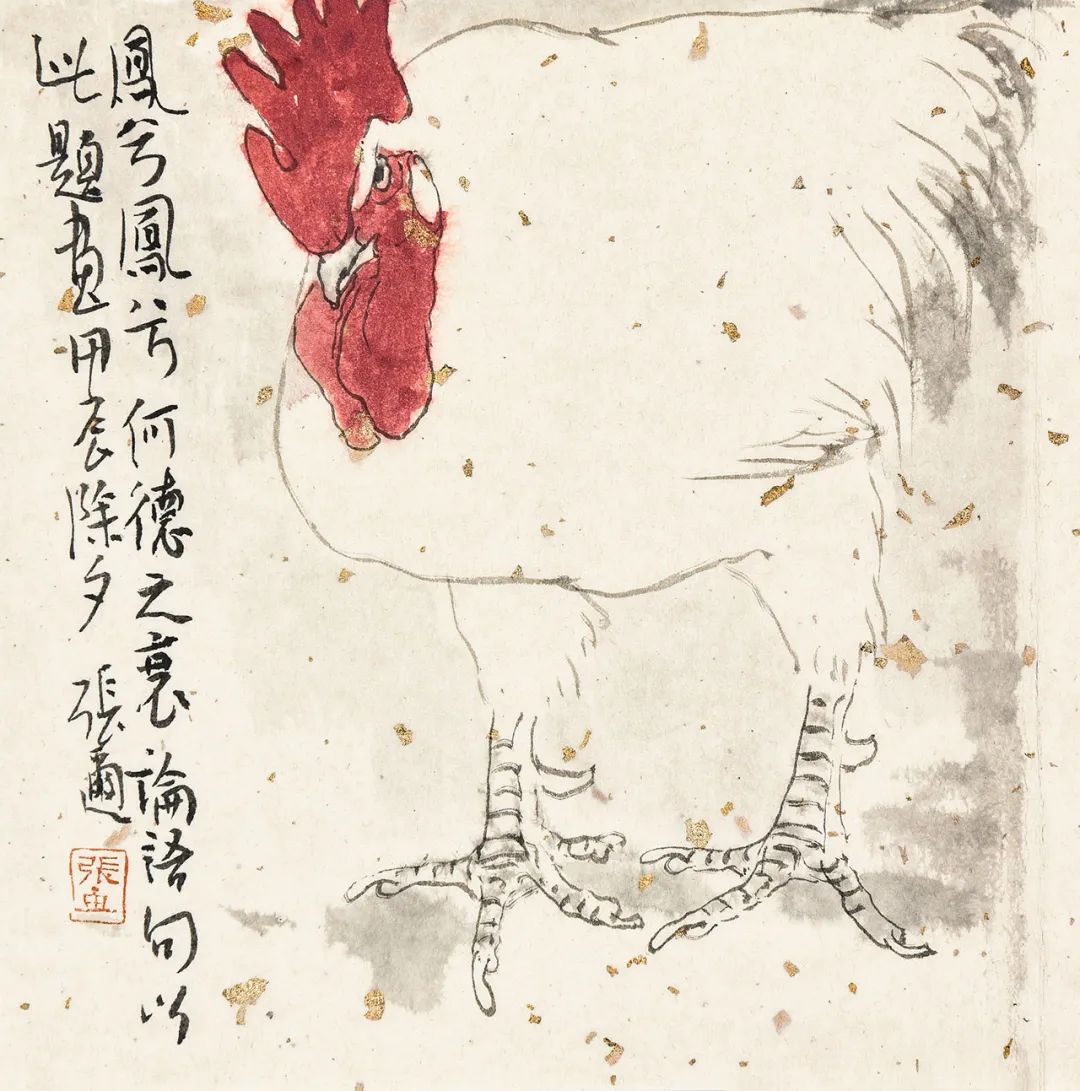 鳳兮鳳兮何德之衰論語句以
此題畫甲辰除夕 張
張